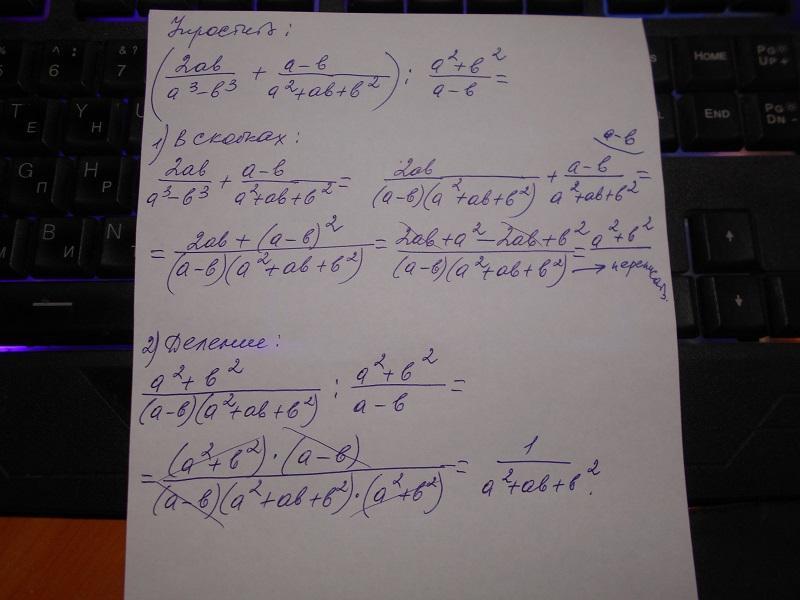 Упростить:
(2ab/(a³-b³) + (a-b)/(a²+ab+b²)) : (a²+b²)/(a-b) =
1) В скобках:
a-b
2ab/(a³-b³) + (a-b)/(a²+ab+b²) = 2ab/((a-b)(a²+ab+b²)) + (a-b)/(a²+ab+b²) =
= (2ab+(a-b)²)/((a-b)(a²+ab+b²)) = (2ab+a²-2ab+b²)/((a-b)(a²+ab+b²)) = (a²+b²)/ → переписать.
2) Деление:
(a²+b²)/((a-b)(a²+ab+b²)) : (a²+b²)/(a-b) =
= ((a²+b²)·(a-b))/((a-b)(a²+ab+b²)·(a²+b²)) = 1/(a²+ab+b²).
6
^ : 6
& ? 7
HOME
PG UP
T Е
Y Н
U
END
PG DN
G П
H Р
B И
N